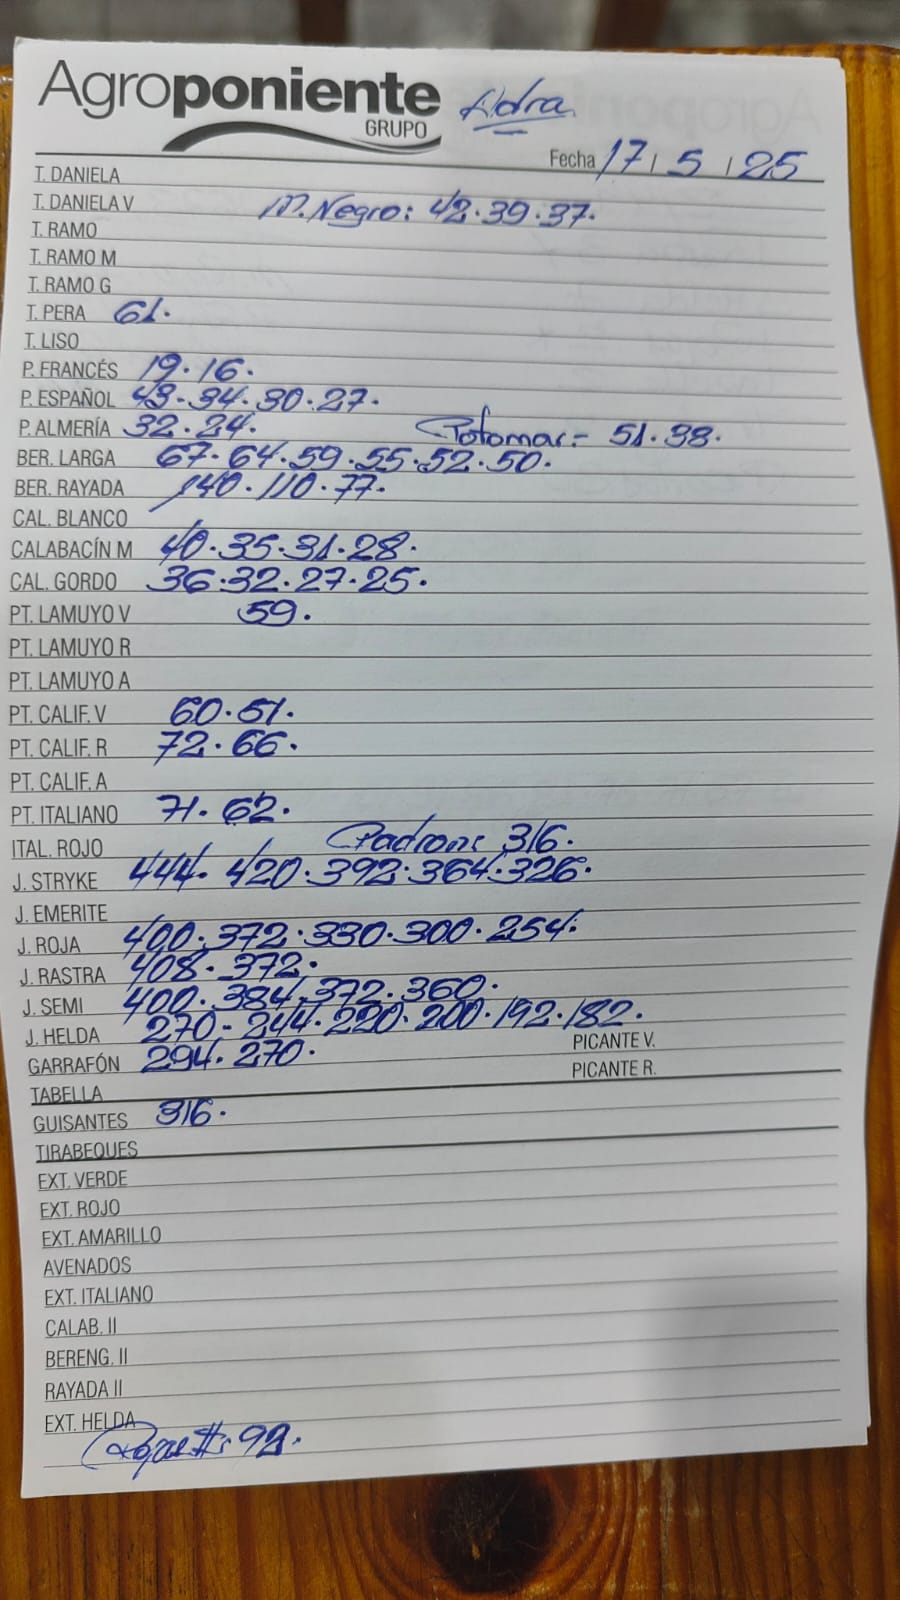 Agroponiente
GRUPO
Adra
Fecha 17 / 5 / 25
T. DANELA
T. DANIELA V M. Negro: 42.39.37.
T. RAMO
T. RAMO M
T. RAMO G
T. PERA 61.
T. LISO
P. FRANCÉS 19.16.
P. ESPAÑOL 43-34.30.27.
P. ALMERÍA 32.24. Potomac= 51.38.
BER. LARGA 67.64.59.55.52.50.
BER. RAYADA 140.110.77.
CAL. BLANCO
CALABACÍN M 40.35.31.28.
CAL. GORDO 36.32.27.25.
PT. LAMUYO V 59.
PT. LAMUYO R
PT. LAMUYO A
PT. CALIF. V 60.51.
PT. CALIF. R 72.66.
PT. CALIF. A
PT. ITALIANO 71.62.
ITAL. ROJO Padron: 316.
J. STRYKE 444.420.392.364.326.
J. EMERITE
J. ROJA 400.372.330.300.254.
J. RASTRA 408.372.
J. SEMI 400.384.372.360.
J. HELDA 270-244.220.200.192.182.
PICANTE V.
GARRAFÓN 294.270.
PICANTE R.
TABELLA
GUISANTES 316.
TIRABEQUES
EXT. VERDE
EXT. ROJO
EXT. AMARILLO
AVENADOS
EXT. ITALIANO
CALAB. II
BERENG. II
RAYADA II
EXT. HELDA
92.